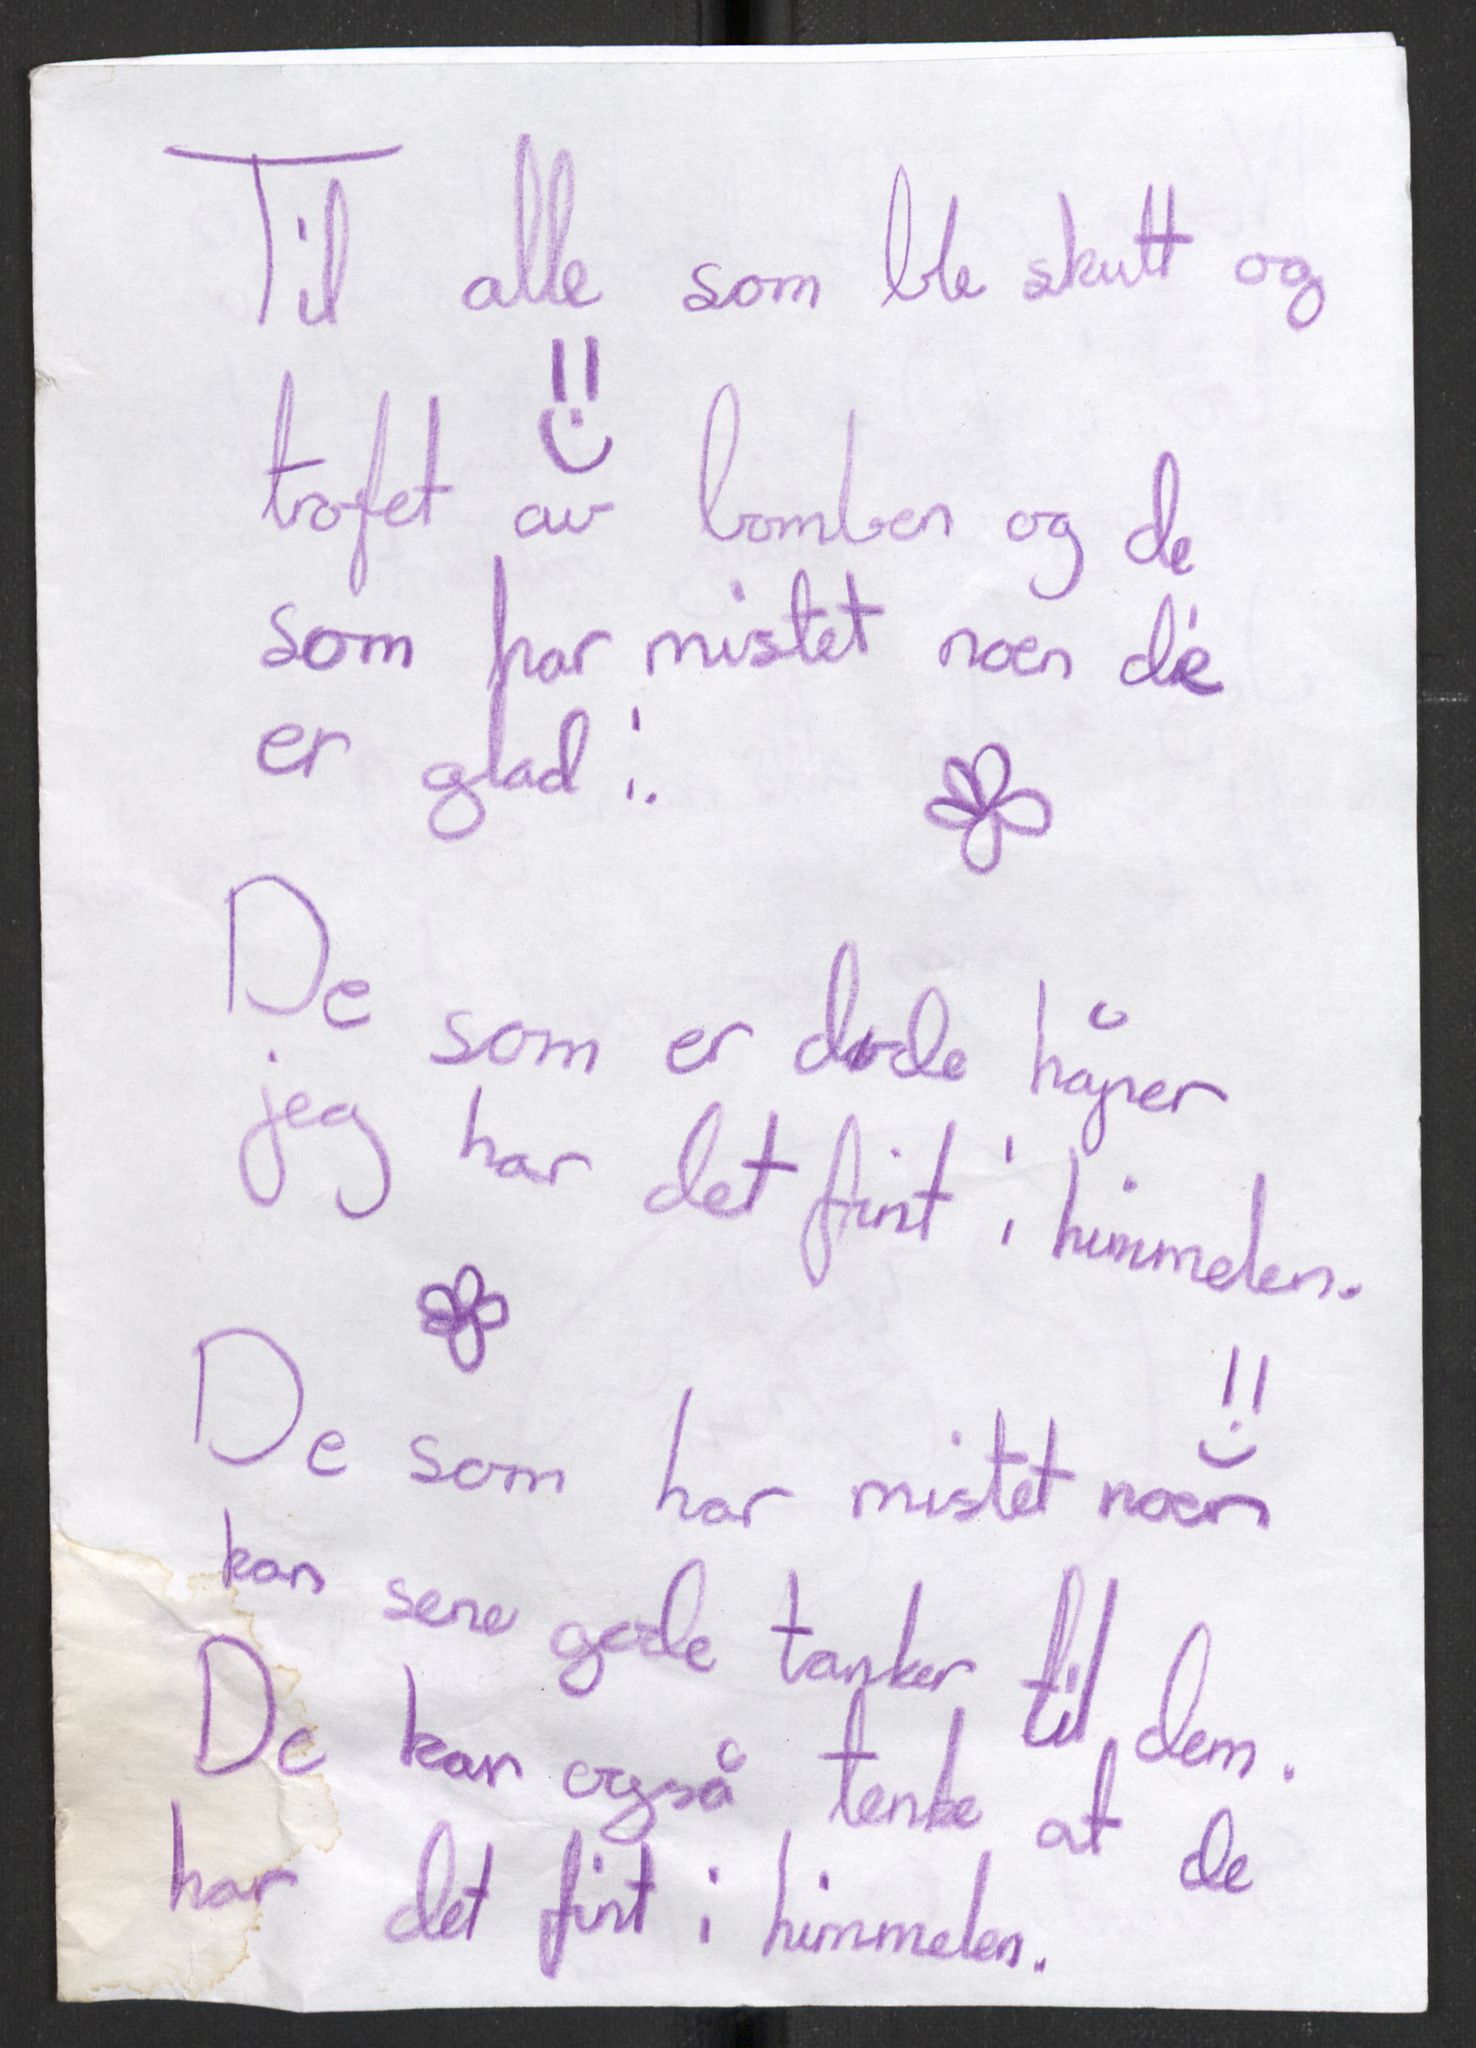 Til alle som ble skutt og
trofet av bomben og de
som har mistet noen de
er glad i.
De som er døde håper
jeg har det fint i himmelen.
De som har mistet noen
kan sene gode tanker til dem.
De kan også tenke at de
har det fint i himmelen.